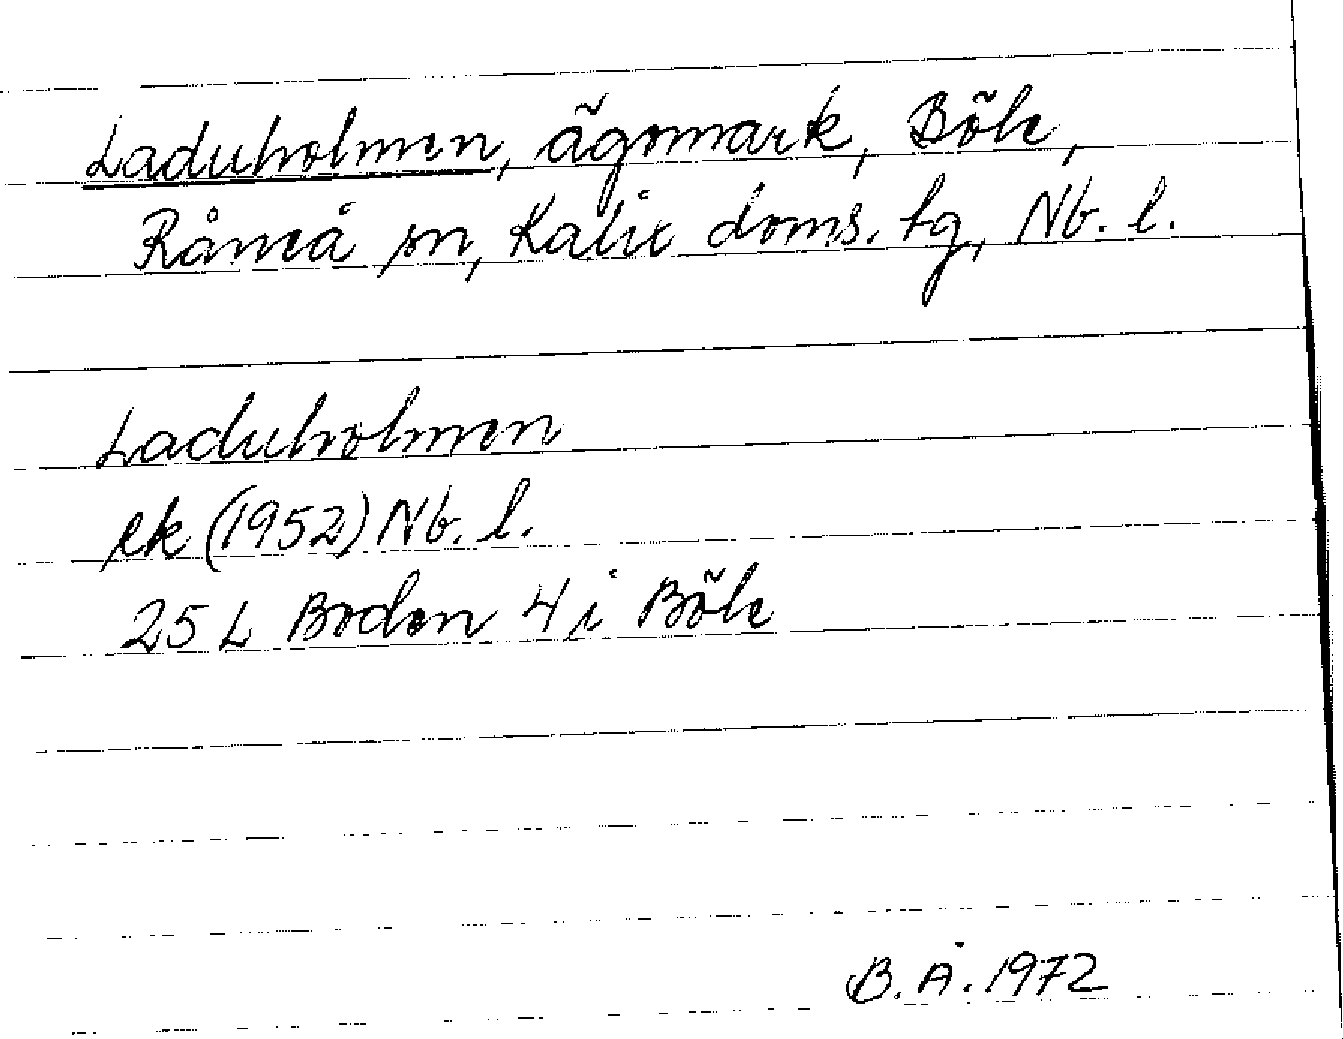 Laduholmen, ägomark, Böle,
Råneå sn, Kalix doms. tg, Nb. l.
Laduholmen
ek (1952) Nb. l.
25 L Boden 4 i Böle
B. Å. 1972